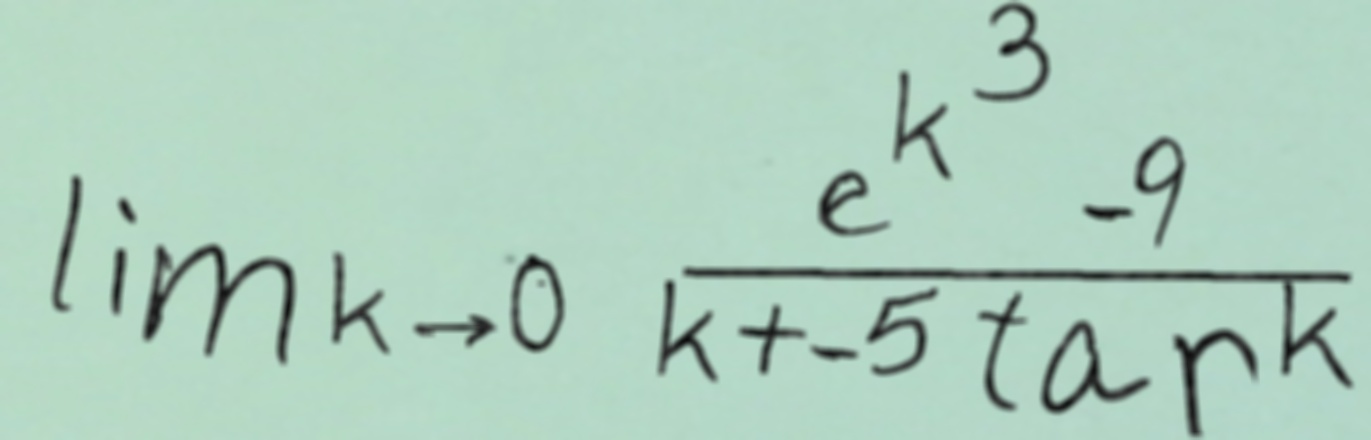 lim k→0 \frac{e^{k^3} -9}{k+-5 tan k}